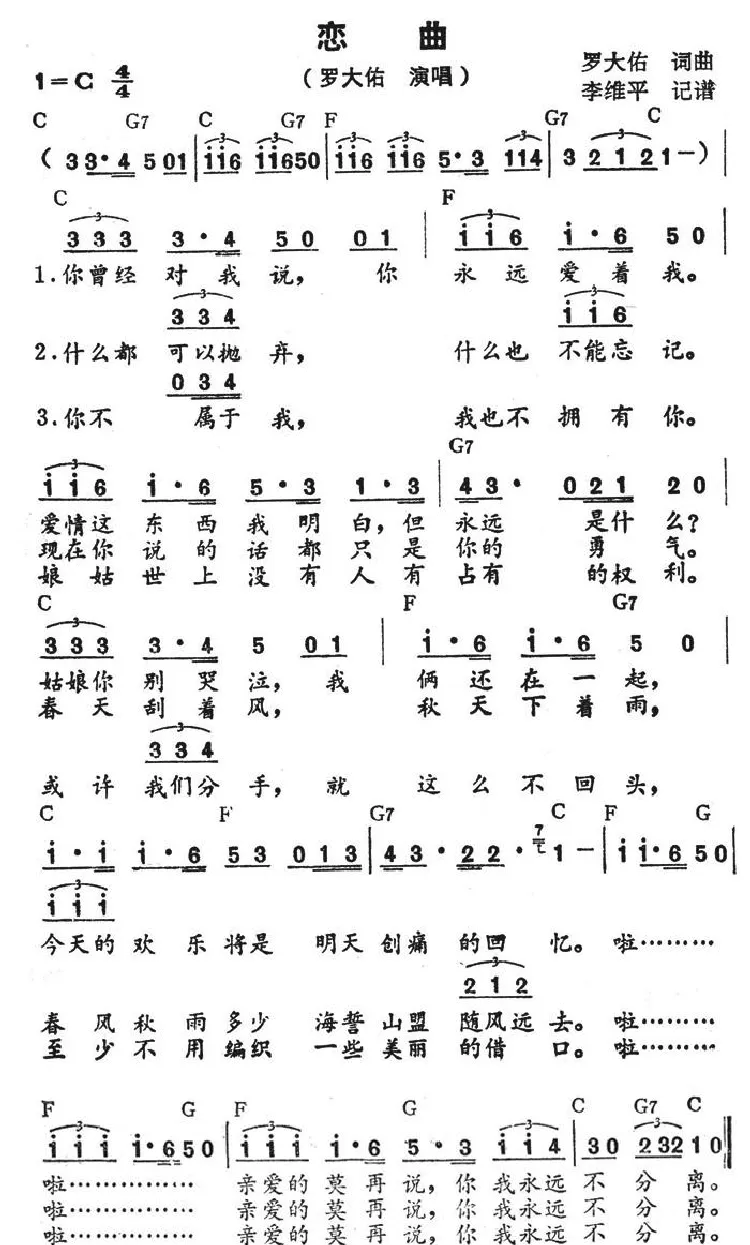 恋 曲
1=C 4/4 (罗大佑 演唱) 罗大佑 词曲
李维平 记谱
C G7 C G7 F G7 C
( 3 3·4 5 01 | i i 6 i i 6 5 0 | i i 6 i i 6 5·3 1 1 4 | 3 2 1 2 1 - ) |
C F
3 3 3 3·4 5 0 0 1 | i i 6 i·6 5 0 |
1.你曾经 对 我 说, 你 永 远 爱 着 我。
3 3 4 i i 6
2.什么都 可以抛 弃, 什么也 不能忘 记。
0 3 4
3.你不 属于 我, 我也不 拥 有 你。
G7
i i 6 i·6 5·3 1·3 | 4 3· 0 2 1 2 0 |
爱情这 东 西 我 明 白, 但 永远 是什 么?
现在你 说 的 话 都 只 是 你的 勇 气。
娘 姑 世 上 没 有 人 有 占有 的权 利。
C F G7
3 3 3 3·4 5 0 1 | i·6 i·6 5 0 |
姑娘你 别 哭 泣, 我 俩 还 在 一 起,
春 天 刮 着 风, 秋 天 下 着 雨,
3 3 4
或 许 我们分 手, 就 这 么 不 回 头,
C F G7 C F G
i·i i·6 5 3 0 1 3 | 4 3· 2 2· 7 1 - | i i·6 5 0 |
i i i
今天的 欢 乐 将是 明天 创痛 的回 忆。 啦………
2 1 2
春 风 秋 雨 多少 海誓 山盟 随风远 去。 啦………
至 少 不 用 编织 一些 美丽 的借 口。 啦………
F G F G C G7 C
i i i i·6 5 0 | i i i i·6 5·3 i i 4 | 3 0 2 3 2 1 0 |
啦…………… 亲爱的 莫 再 说, 你 我永远 不 分 离。
啦…………… 亲爱的 莫 再 说, 你 我永远 不 分 离。
啦…………… 亲爱的 莫 再 说, 你 我永远 不 分 离。